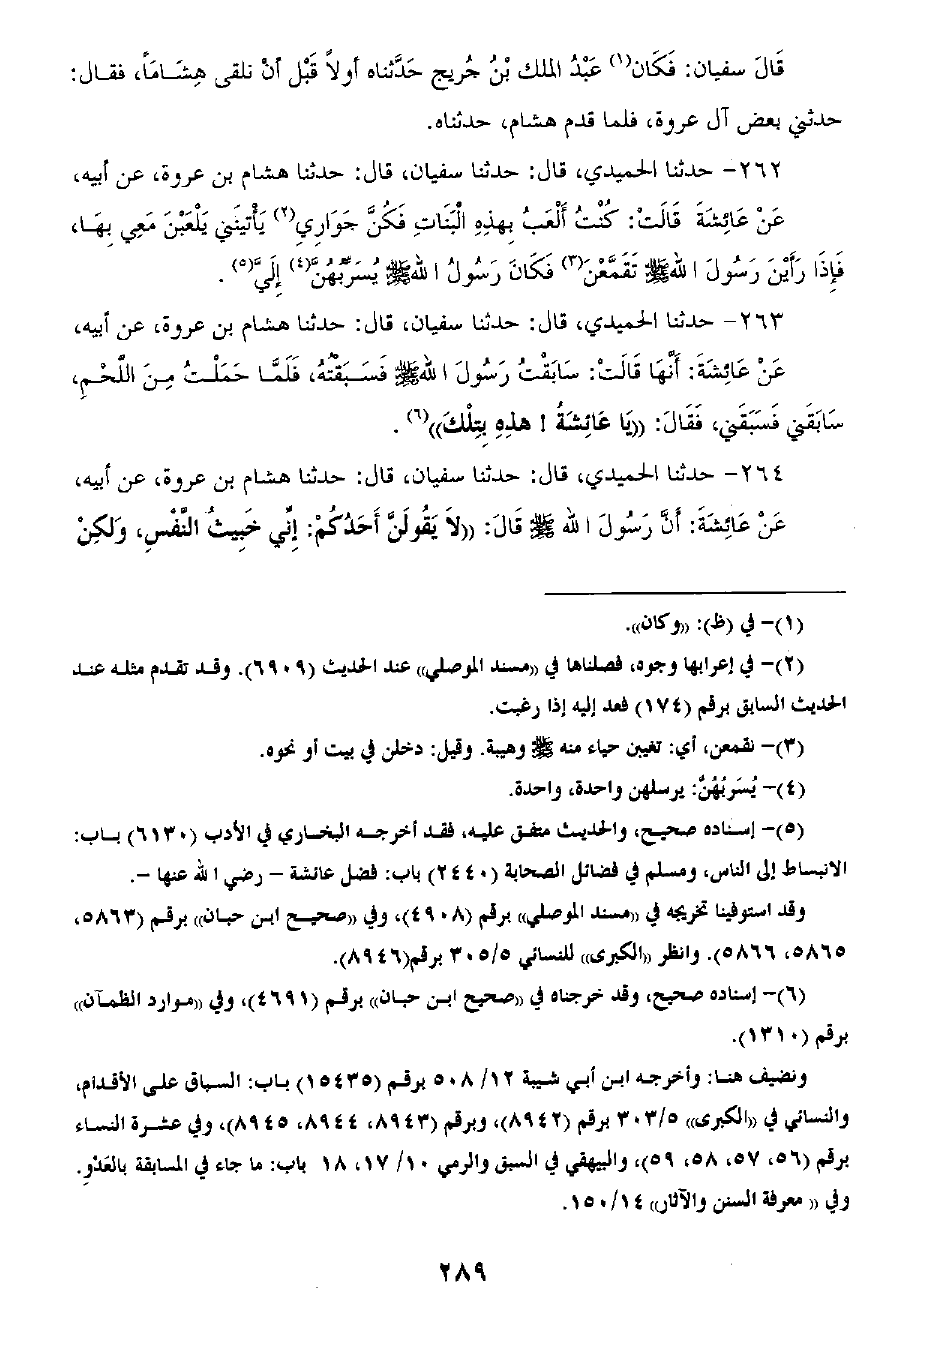 قَالَ سفيان: فَكَان(١) عَبْدُ الملك بْنُ جُريج حَدَّثناه أولاً قَبْل أنْ نلقى هِشَاماً، فقال:
حدثني بعض آل عروة، فلما قدم هشام، حدثناه.
٢٦٢- حدثنا الحميدي، قال: حدثنا سفيان، قال: حدثنا هشام بن عروة، عن أبيه،
عَنْ عَائِشَةَ قَالَتْ: كُنْتُ أَلْعَبُ بِهذِهِ الْبَنَاتِ فَكُنَّ جَوَارِي(٢) يَأْتِينَنِي يَلْعَبْنَ مَعِي بِهَا،
فَإِذَا رَأَيْنَ رَسُولَ اللهِ ﷺ تَقَمَّعْنَ(٣) فَكَانَ رَسُولُ اللهِ ﷺ يُسَرِّبُهُنَّ(٤) إِلَيَّ(٥).
٢٦٣- حدثنا الحميدي، قال: حدثنا سفيان، قال: حدثنا هشام بن عروة، عن أبيه،
عَنْ عَائِشَةَ: أَنَّهَا قَالَتْ: سَابَقْتُ رَسُولَ اللهِ ﷺ فَسَبَقْتُهُ، فَلَمَّا حَمَلْتُ مِنَ اللَّحْمِ،
سَابَقَنِي فَسَبَقَنِي، فَقَالَ: ((يَا عَائِشَةُ ! هذِهِ بِتِلْكَ))(٦) .
٢٦٤- حدثنا الحميدي، قال: حدثنا سفيان، قال: حدثنا هشام بن عروة، عن أبيه،
عَنْ عَائِشَةَ: أَنَّ رَسُولَ اللهِ ﷺ قَالَ: ((لاَ يَقُولَنَّ أَحَدُكُمْ: إِنِّي خَبِيثُ النَّفْسِ، وَلكِنْ
(١)- في (ظ): ((وكان)).
(٢)- في إعرابها وجوه، فصلناها في ((مسند الموصلي)) عند الحديث (٦٩٠٩). وقد تقدم مثله عند
الحديث السابق برقم (١٧٤) فعد إليه إذا رغبت.
(٣)- نقمعن، أي: تغيبن حياء منه ﷺ وهيبة. وقيل: دخلن في بيت أو نحوه.
(٤)- يُسَرِّبُهُنَّ: يرسلهن واحدة، واحدة.
(٥)- إسناده صحيح، والحديث متفق عليه، فقد أخرجه البخاري في الأدب (٦١٣٠) باب:
الانبساط إلى الناس، ومسلم في فضائل الصحابة (٢٤٤٠) باب: فضل عائشة - رضي الله عنها -.
وقد استوفينا تخريجه في ((مسند الموصلي)) برقم (٤٩٠٨)، وفي ((صحيح ابن حبان)) برقم (٥٨٦٣،
٥٨٦٥، ٥٨٦٦). وانظر ((الكبرى)) للنسائي ٣٠٥/٥ برقم(٨٩٤٦).
(٦)- إسناده صحيح، وقد خرجناه في ((صحيح ابن حبان)) برقم (٤٦٩١)، وفي ((موارد الظمآن))
برقم (١٣١٠).
ونضيف هنا: وأخرجه ابن أبي شيبة ١٢/ ٥٠٨ برقم (١٥٤٣٥) باب: السباق على الأقدام،
والنسائي في ((الكبرى)) ٣٠٣/٥ برقم (٨٩٤٢)، وبرقم (٨٩٤٣، ٨٩٤٤، ٨٩٤٥)، وفي عشرة النساء
برقم (٥٦، ٥٧، ٥٨، ٥٩)، والبيهقي في السبق والرمي ١٠/ ١٧، ١٨ باب: ما جاء في المسابقة بالعَدْوِ.
وفي (( معرفة السنن والآثار)) ١٥٠/١٤.
٢٨٩